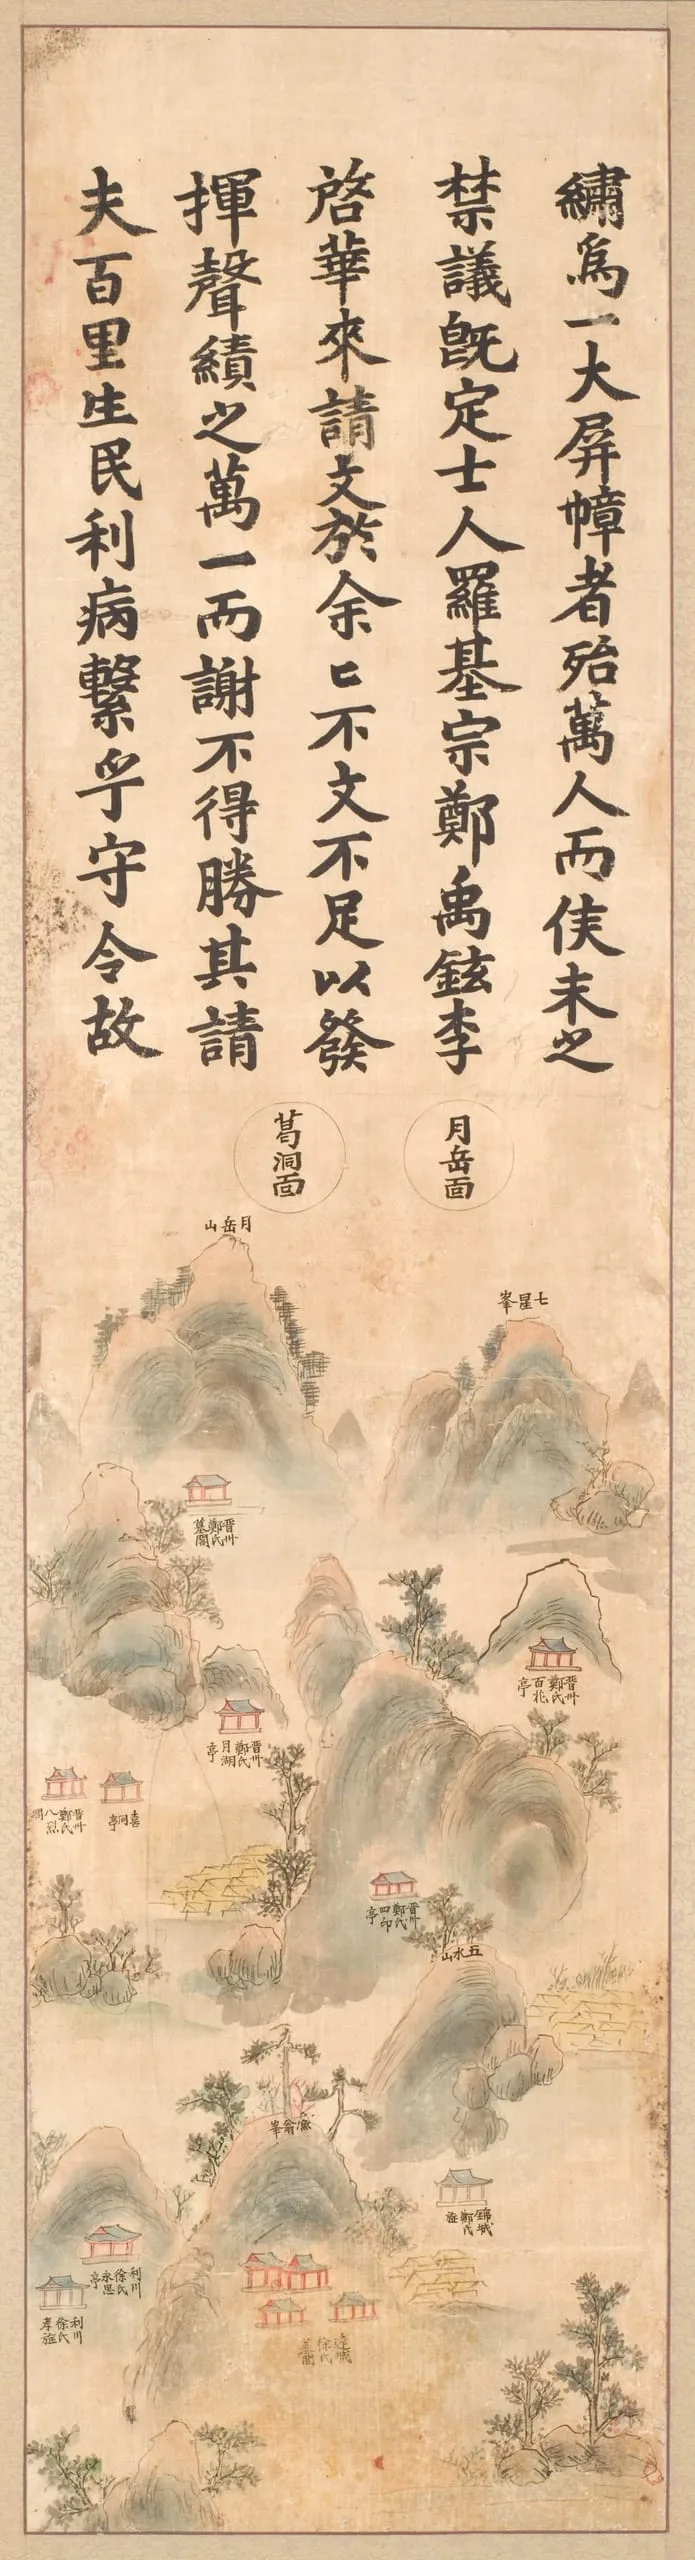 繡爲一大屛幛者殆萬人而侯未之
禁議旣定士人羅基宗鄭禹鉉李
啓華來請文於余匕不文不足以發
揮聲績之萬一而謝不得勝其請
夫百里生民利病繫乎守令故
月岳面
葛洞面
月岳山
七星峯
晋州鄭氏墓閣
晋州鄭氏百花亭
晋州鄭氏月湖亭
喜洞亭
晋州鄭氏八烈閣
晋州鄭氏四印亭
五水山
漁翁峯
錦城鄭氏旌
利川徐氏永思亭
利川徐氏孝旌
達城徐氏墓閣